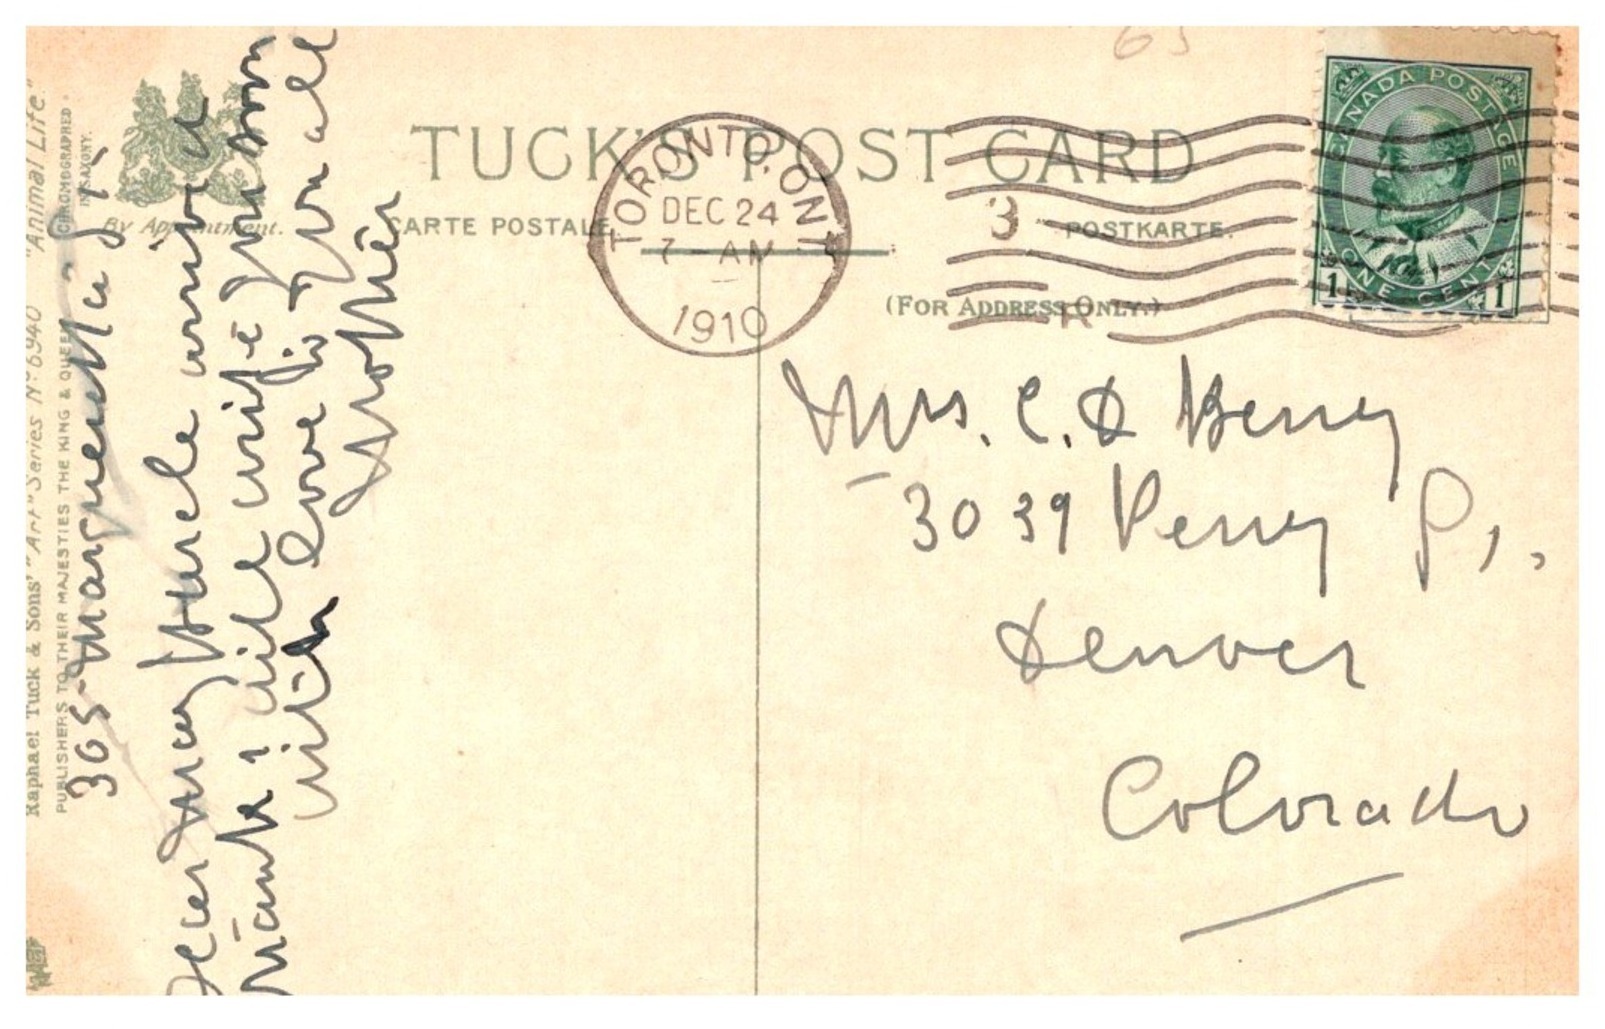 TUCK'S POST CARD
CARTE POSTALE
POSTKARTE.
(FOR ADDRESS ONLY.)
By Appointment.
TORONTO, ONT.
DEC 24
7 - AM
1910
3
R
65
CANADA POSTAGE
ONE CENT
1 1
Mrs. C. D Berry
3039 Perry St,
Denver
Colorado
Raphael Tuck & Sons' "Art" Series No. 6940 "Animal Life."
PUBLISHERS TO THEIR MAJESTIES THE KING & QUEEN
CHROMOGRAPHED
IN SAXONY.
365 Margueretta St.
Dear May Parcle arrived
thanks, will write you soon
with love to you all
Sophie